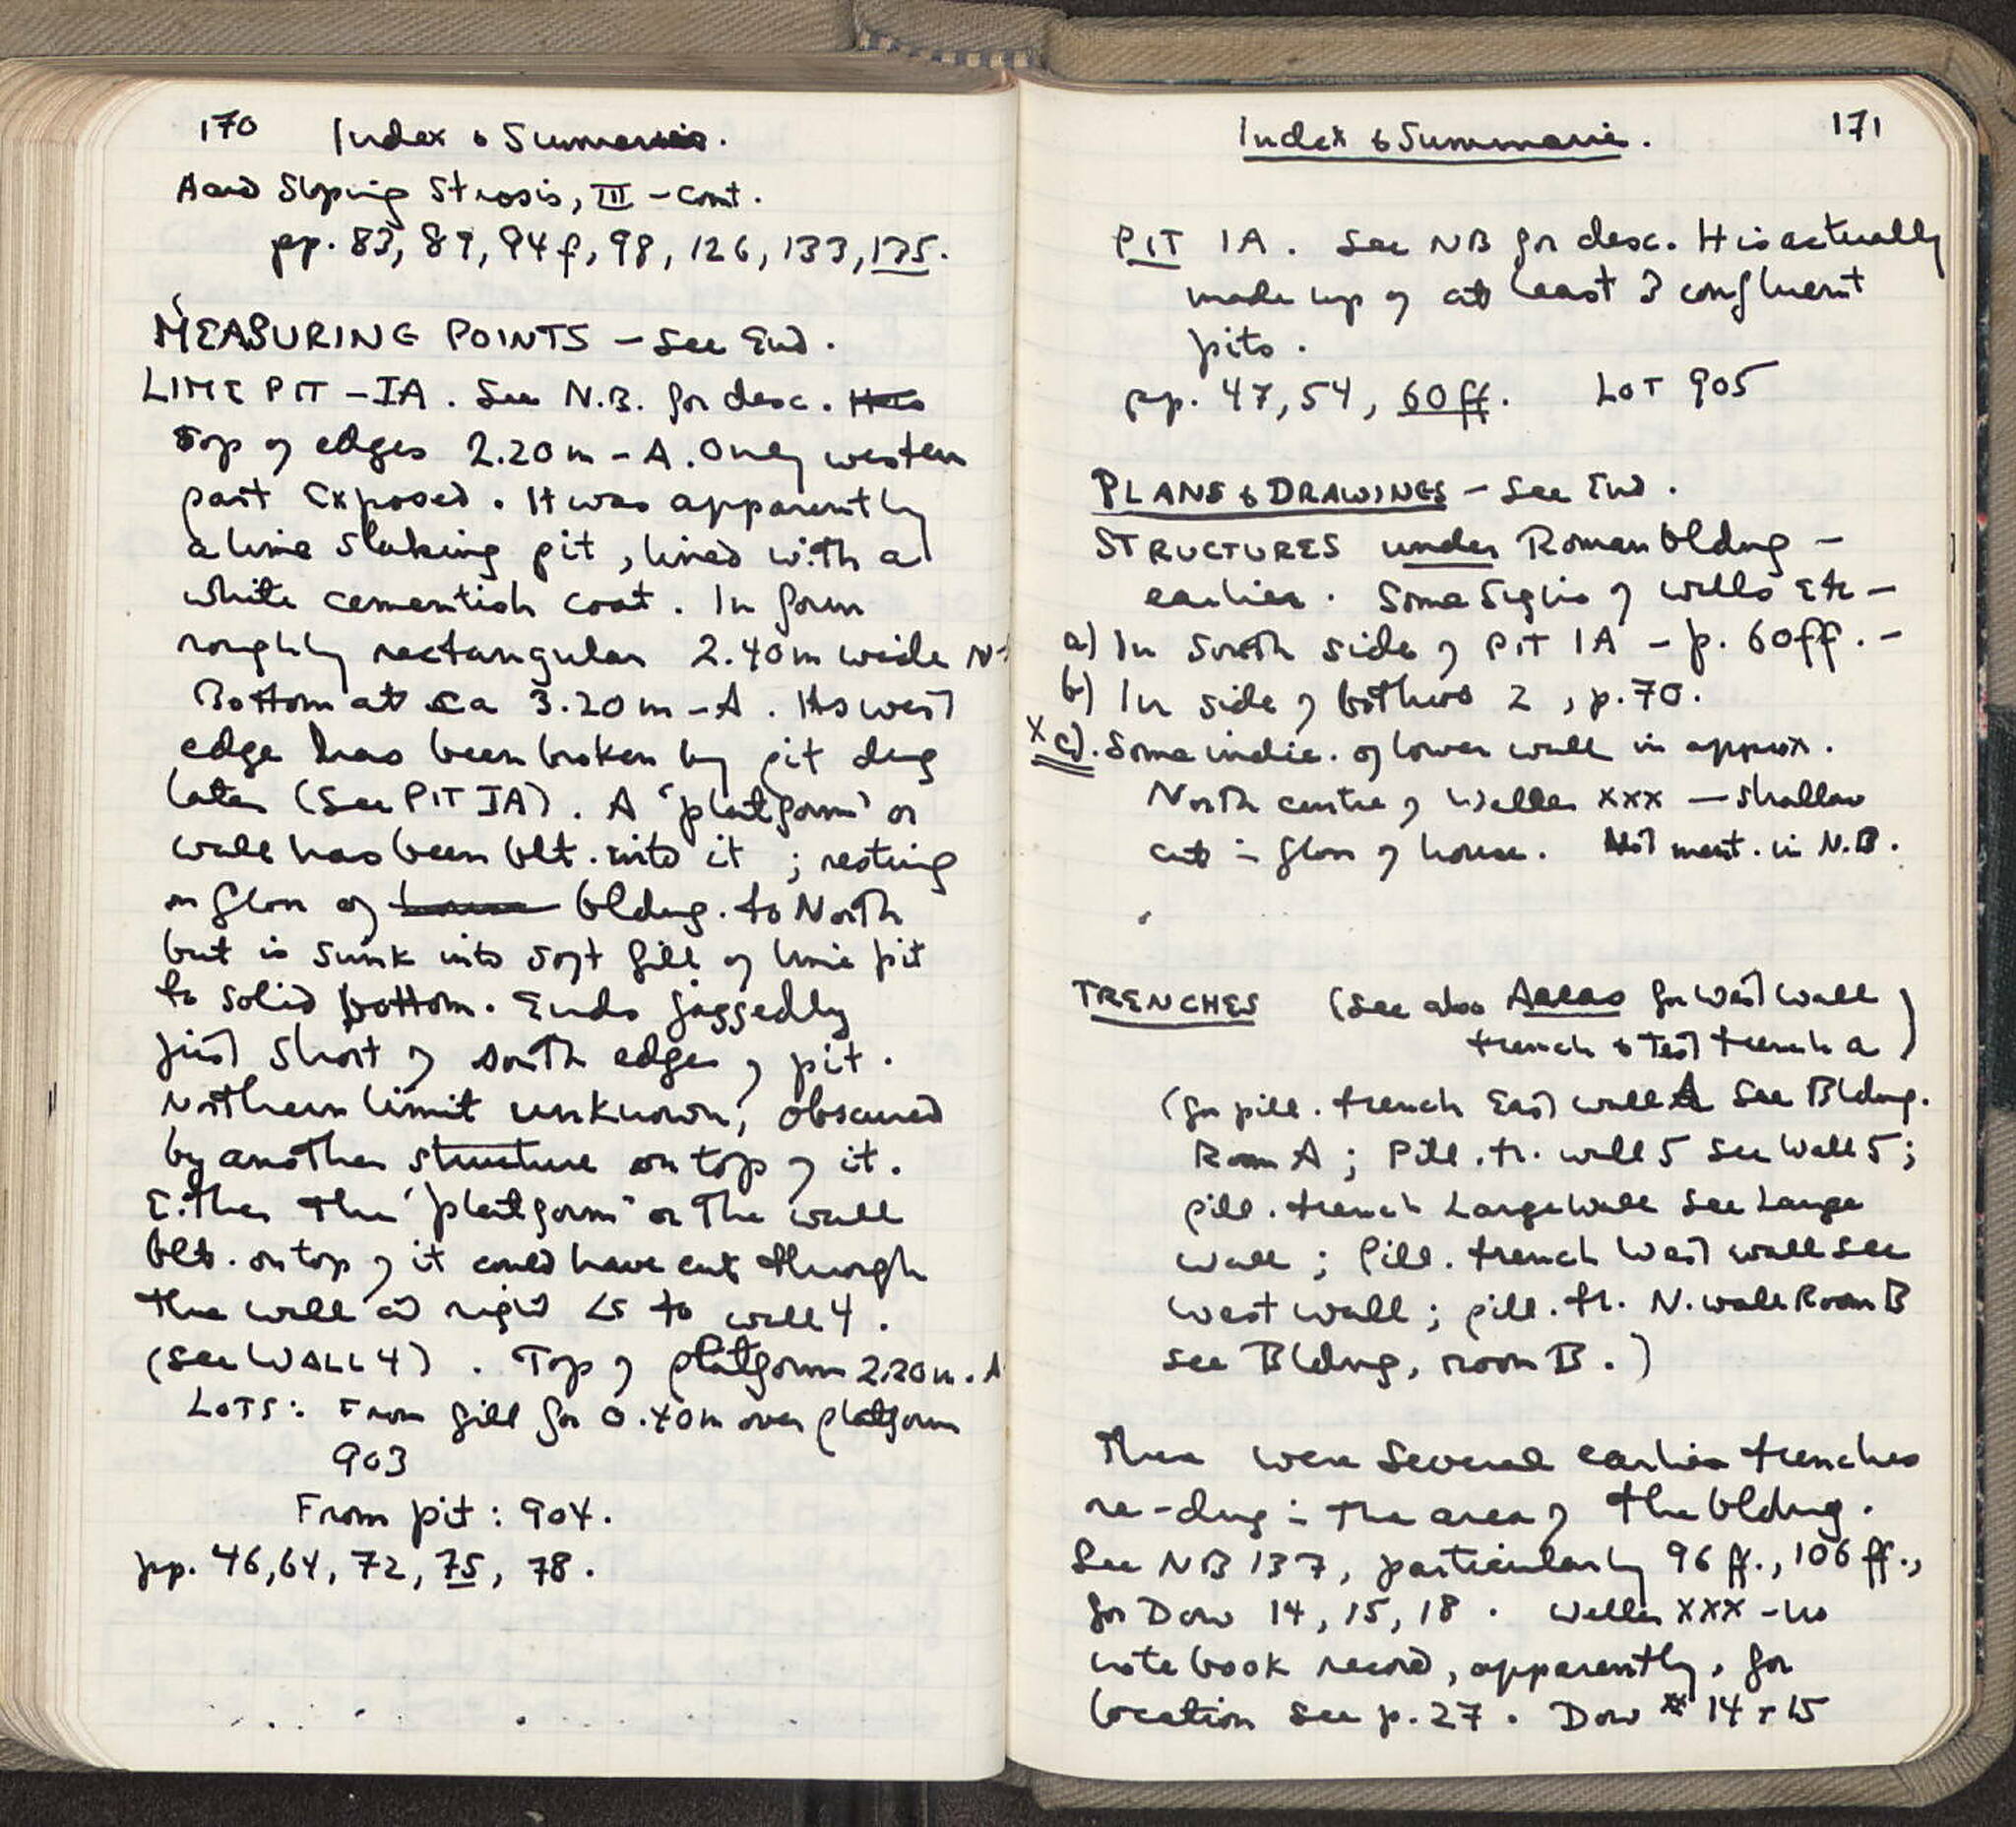 170 Index & Summaries.
Hard Sloping Strosis, III - cont.
pp. 83, 89, 94f, 98, 126, 133, 135.
MEASURING POINTS - See End.
LIME PIT - IA. See N.B. for desc.
Top of edges 2.20 m - A. Only western
part exposed. It was apparently
a lime slaking pit, lined with a
white cementish coat. In form
roughly rectangular 2.40m wide N-
Bottom at ca 3.20 m - A. Its west
edge has been broken by pit dug
later (See PIT IA). A 'platform' or
wall has been blt. into it; resting
on floor of bldng. to North
but is sunk into soft fill of lime pit
to solid bottom. Ends jaggedly
just short of south edge of pit.
Northern limit unknown, obscured
by another structure on top of it.
Either the 'platform' or the wall
blt. on top of it could have cut through
the wall at right ∠s to wall 4.
(See WALL 4). Top of platform 2.20m. A
LOTS: From fill for 0.40m over platform
903
From pit: 904.
pp. 46, 64, 72, 75, 78.
Index & Summarie. 171
PIT IA. See NB for desc. It is actually
made up of at least 3 confluent
pits.
pp. 47, 54, 60ff. LOT 905
PLANS & DRAWINGS - See End.
STRUCTURES under Roman bldng -
earlier. Some signs of walls etc -
a) In South side of PIT IA - p. 60ff. -
b) In side of bothros 2, p. 70.
x c). Some indic. of lower wall in approx.
North centre of Weller XXX - shallow
cut in floor of house. Not ment. in N.B.
TRENCHES (See also Areas for West wall
trench & Test trench a)
(for pill. trench East wall A See Bldng.
Room A; Pill. tr. wall 5 see Wall 5;
pill. trench Large Wall see Large
Wall; Pill. trench West wall see
West Wall; pill. tr. N. wall Room B
see Bldng, room B.)
There were several earlier trenches
re-dug in the area of the bldng.
See NB 137, particularly 96 ff., 106 ff.,
for Dow 14, 15, 18. Weller XXX - no
notebook record, apparently, for
location see p. 27. Dow 14 + 15